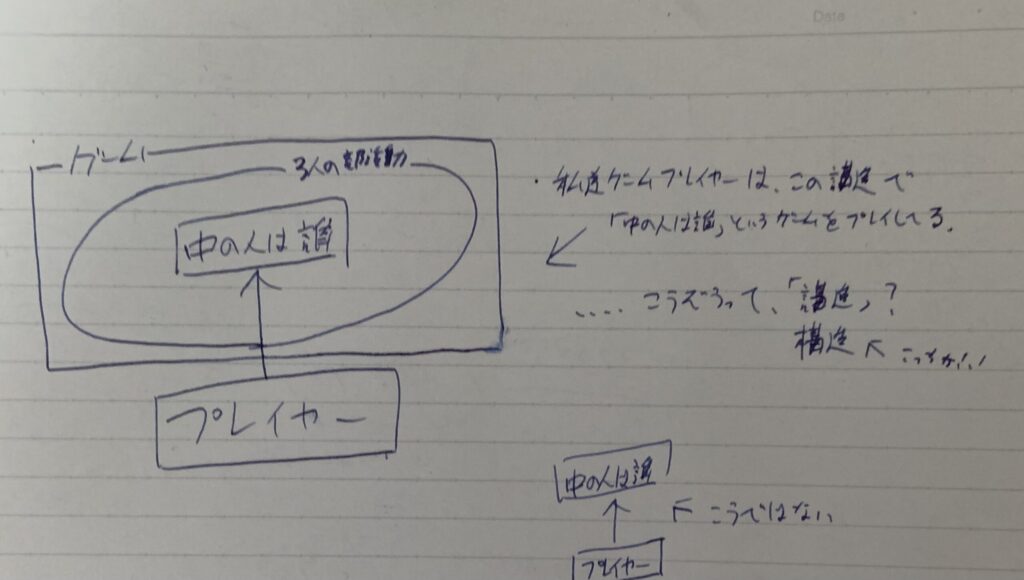 Date
ゲーム
3人の部活動
中の人は誰
プレイヤー
・私達ゲームプレイヤーは、この講造で
「中の人は誰」というゲームをプレイしてる。
..... こうぞうって、「講造」?
構造 ← こっちかい
中の人は誰
← こうではない
プレイヤー